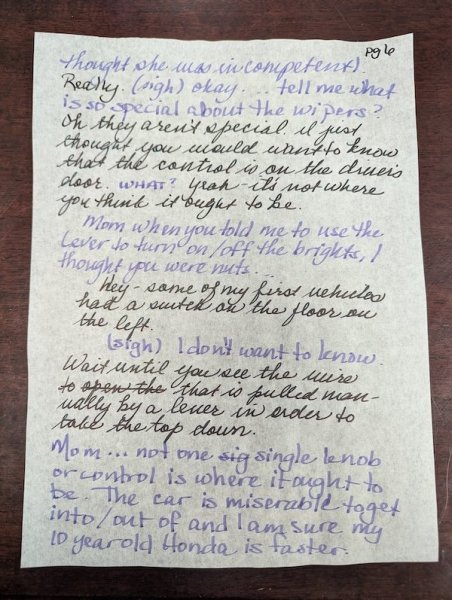 pg 6
thought she was incompetent).
Really. (sigh) okay. ... tell me what
is so special about the wipers?
Oh they aren't special. I just
thought you would want to know
that the control is on the drivers
door. WHAT? Yeah - it's not where
you think it ought to be.
Mom when you told me to use the
Lever to turn on/off the brights, I
thought you were nuts...
Hey - some of my first vehicles
had a switch on the floor on
the left.
(sigh) I don't want to know.
Wait until you see the wire
to open the that is pulled man-
ually by a lever in order to
take the top down.
Mom... not one sig single knob
or control is where it ought to
be. The car is miserable to get
into/out of and I am sure my
10 year old Honda is faster.